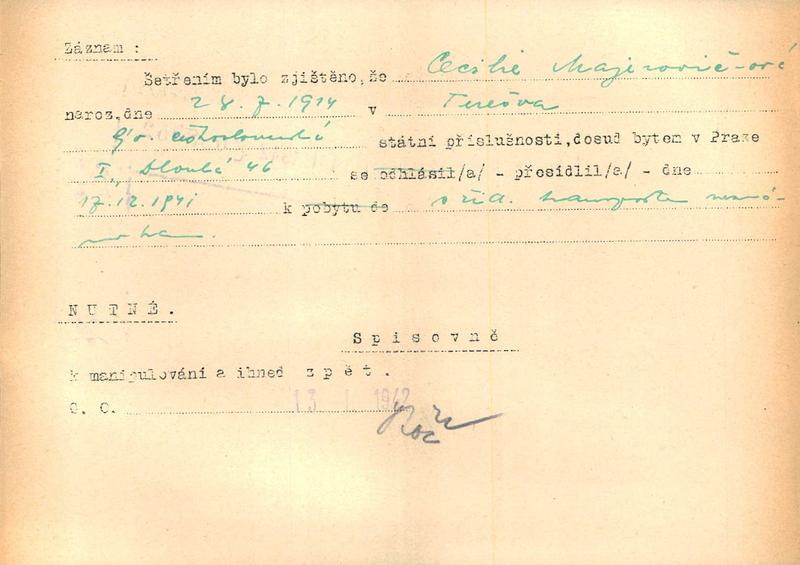 Záznam :
Šetřením bylo zjištěno, že Cecilie Majerovič-ová
naroz. dne 28.7.1914 v Terešva
býv. československé státní příslušnosti, dosud bytem v Praze
I., Dlouhá 46 se odhlásil/a/ - přesídlil/a/ - dne
17.12.1941 k pobytu do s žid. transportem nezná-
mo kam.
NUTNÉ.
Spisovně
k manipulování a ihned zpět.
O. O. 13 I 1942